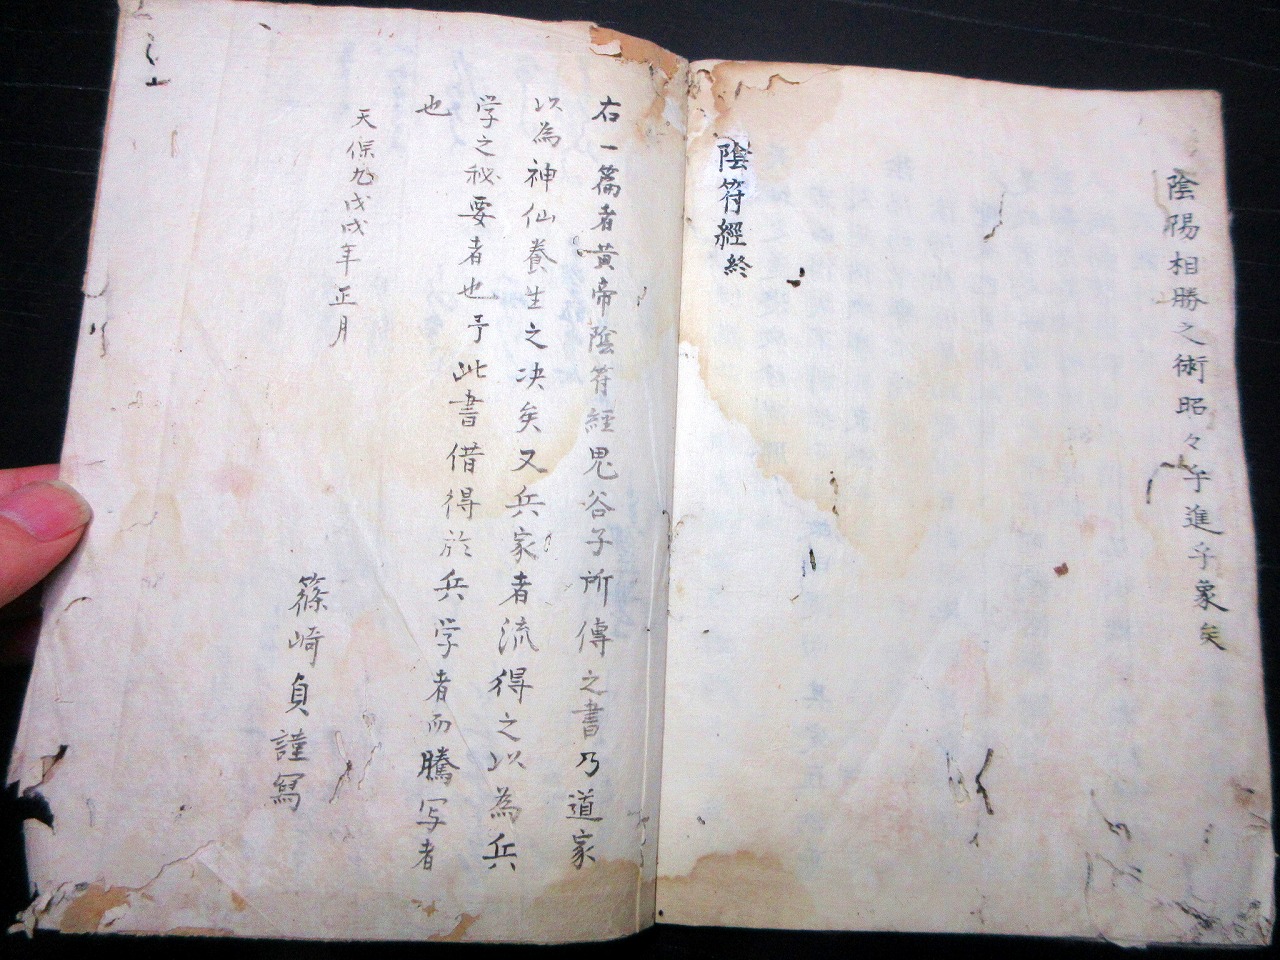 陰陽相勝之術昭々乎進乎象矣
陰符經終
右一篇者黄帝陰符經鬼谷子所傳之書乃道家
以為神仙養生之决矣又兵家者流得之以為兵
学之秘要者也予此書借得於兵学者而騰写者
也
天保九戊戌年正月
篠崎貞謹寫